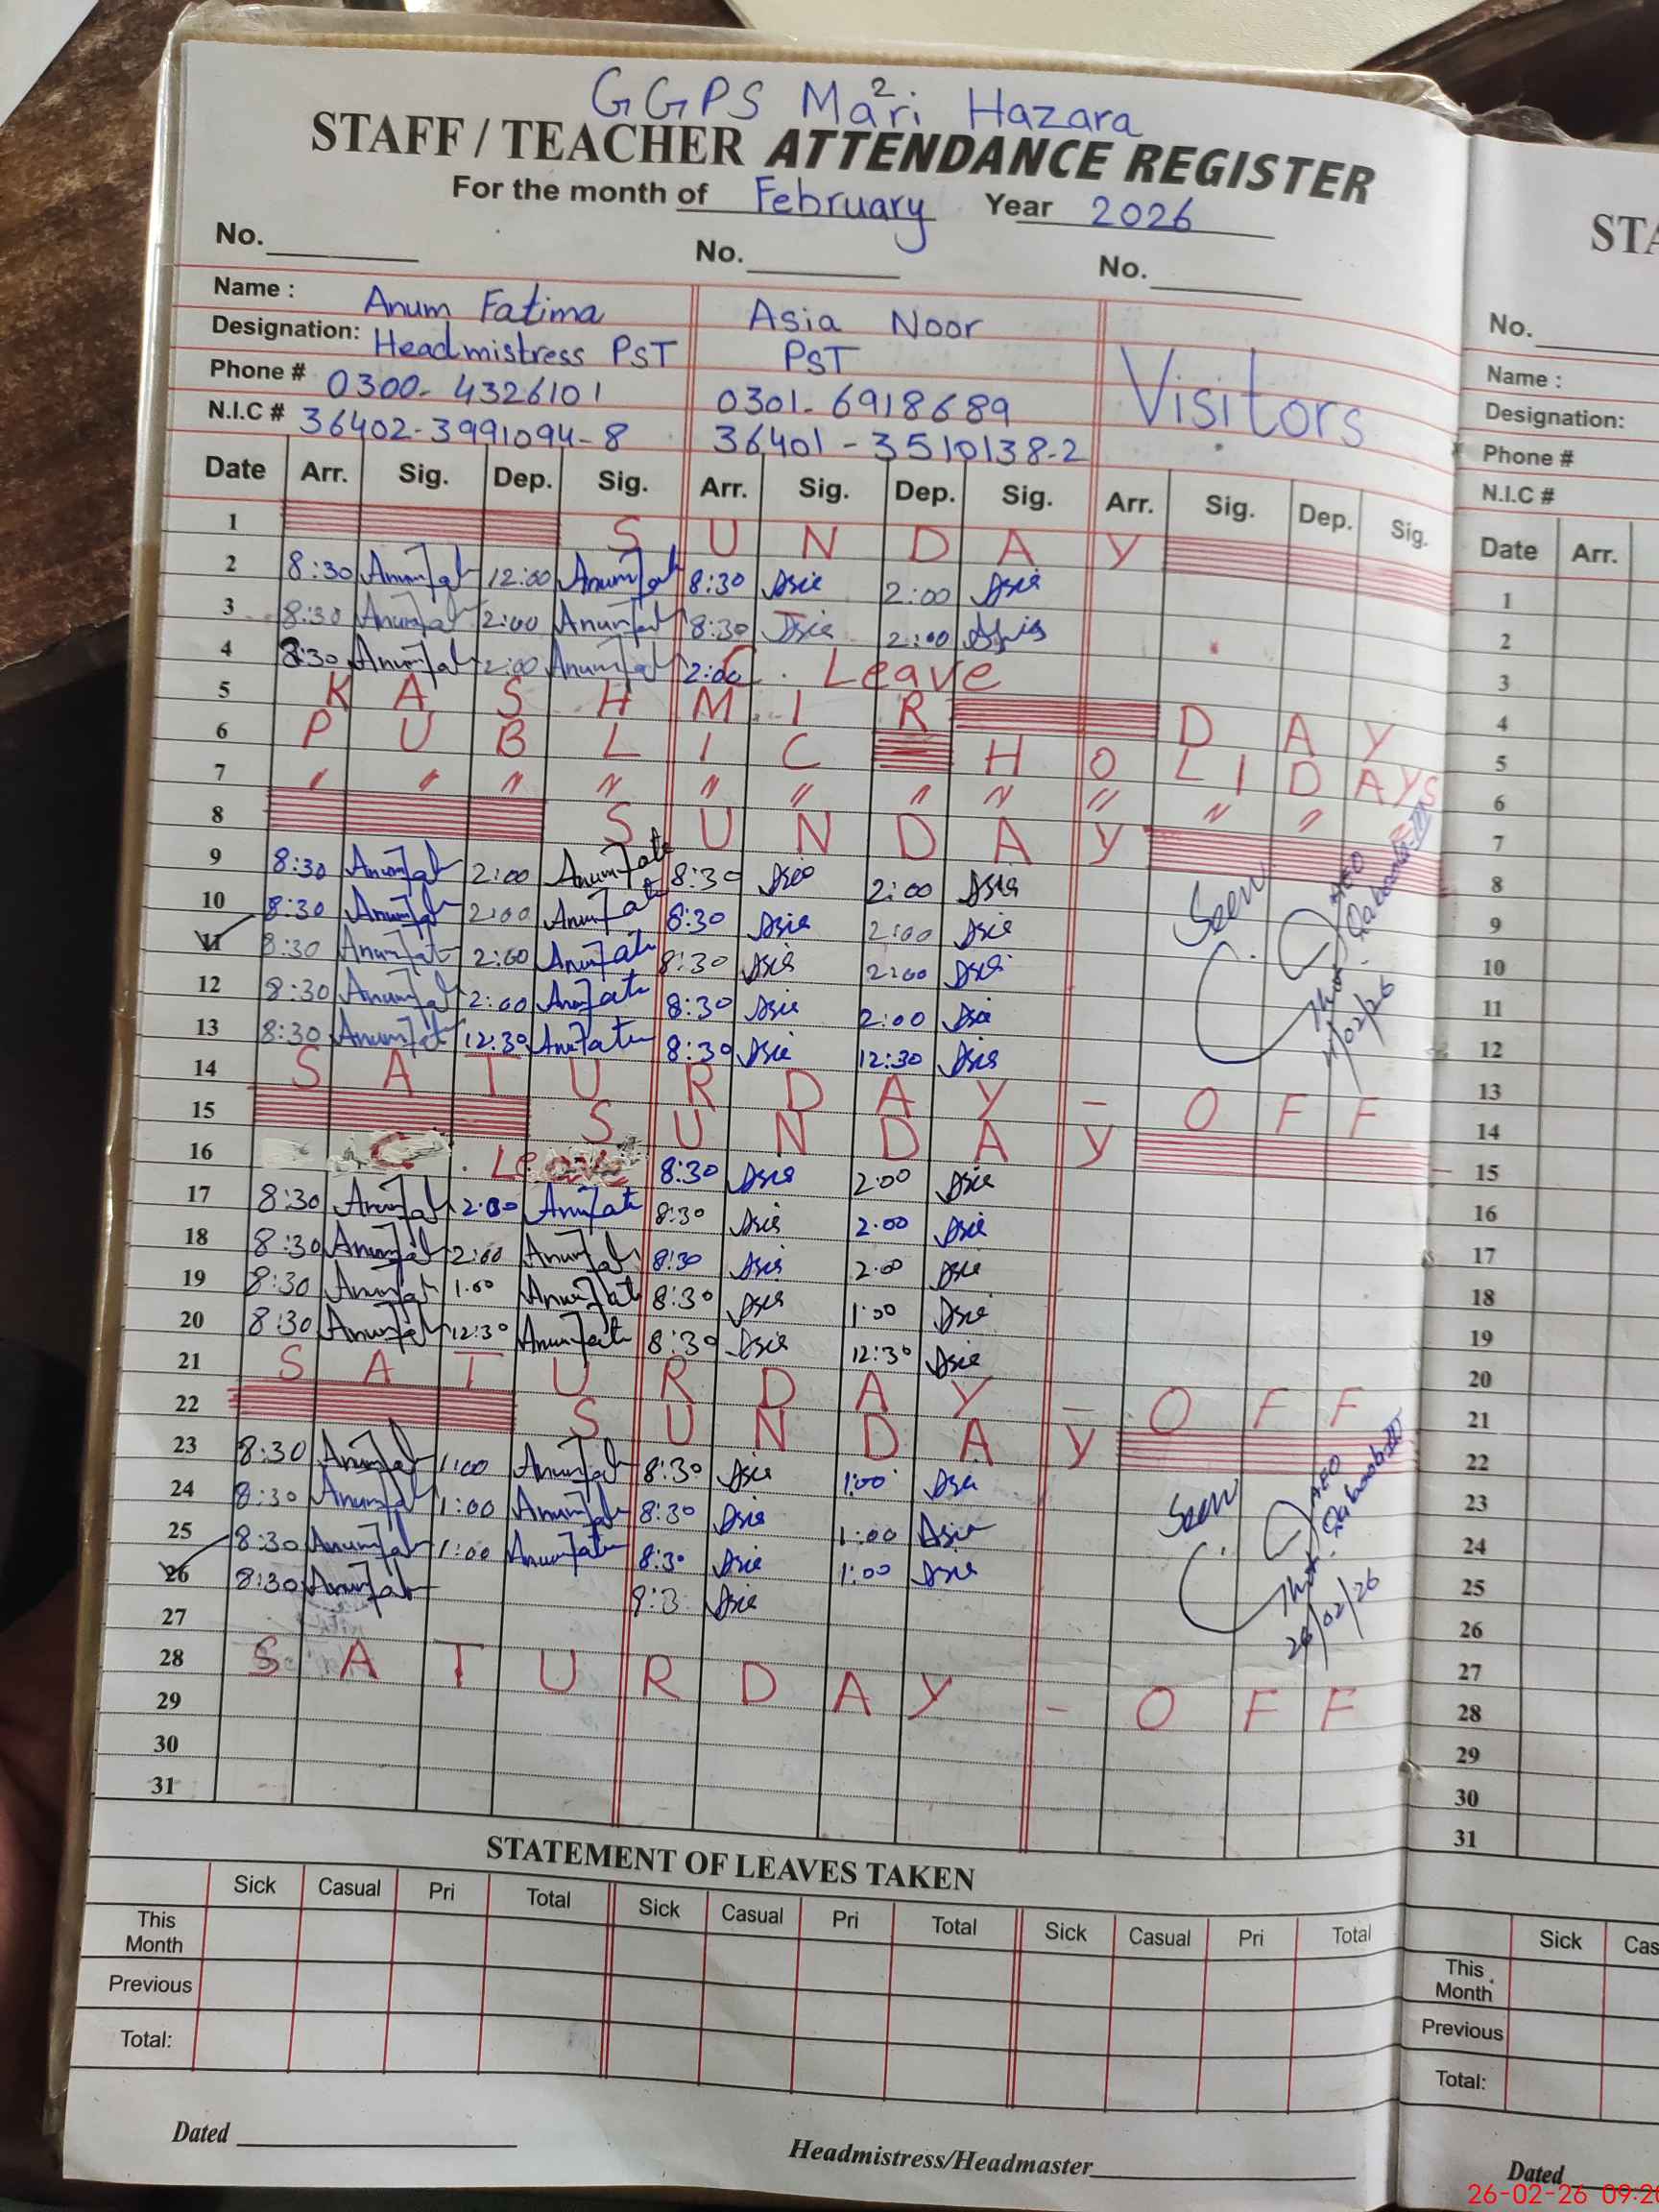 GGPS Mari Hazara
2
STAFF / TEACHER ATTENDANCE REGISTER
For the month of February Year 2026
No. No. No.
Name : Anum Fatima Asia Noor
Designation: Headmistress PST PST
Visitors
Phone # 0300-4326101 0301-6918689
N.I.C # 36402-3991094-8 36401-3510138-2
Date Arr. Sig. Dep. Sig. Arr. Sig. Dep. Sig. Arr. Sig. Dep. Sig.
1 SUNDAY
2 8:30 12:00 8:30 Asia 2:00 Asia
3 8:30 2:00 8:30 2:00
4 8:30 2:00 2:00 C. Leave
5 KASHMIR DAY
6 PUBLIC HOLIDAYS
7 " " " " " " " " " " "
8 SUNDAY
9 8:30 2:00 8:30 Asia 2:00 Asia
10 8:30 2:00 8:30 Asia 2:00 Asia
11 8:30 2:00 8:30 Asia 2:00 Asia
12 8:30 2:00 8:30 Asia 2:00 Asia
13 8:30 12:30 8:30 Asia 12:30 Asia
Seen
AEO
11/02/26
14 SATURDAY - OFF
15 SUNDAY
16 C. Leave 8:30 Asia 2:00 Asia
17 8:30 2:00 8:30 Asia 2:00 Asia
18 8:30 2:00 8:30 Asia 2:00 Asia
19 8:30 1:00 8:30 Asia 1:00 Asia
20 8:30 12:30 8:30 Asia 12:30 Asia
21 SATURDAY - OFF
22 SUNDAY
23 8:30 1:00 8:30 Asia 1:00 Asia
24 8:30 1:00 8:30 Asia 1:00 Asia
25 8:30 1:00 8:30 Asia 1:00 Asia
26 8:30 8:3 Asia
Seen
AEO
26/02/26
27
28 SATURDAY - OFF
29
30
31
STATEMENT OF LEAVES TAKEN
Sick Casual Pri Total Sick Casual Pri Total Sick Casual Pri Total
This Month
Previous
Total:
Dated Headmistress/Headmaster
STA
No.
Name :
Designation:
Phone #
N.I.C #
Date Arr.
1
2
3
4
5
6
7
8
9
10
11
12
13
14
15
16
17
18
19
20
21
22
23
24
25
26
27
28
29
30
31
Sick Cas
This Month
Previous
Total:
Dated
26-02-26 09:20